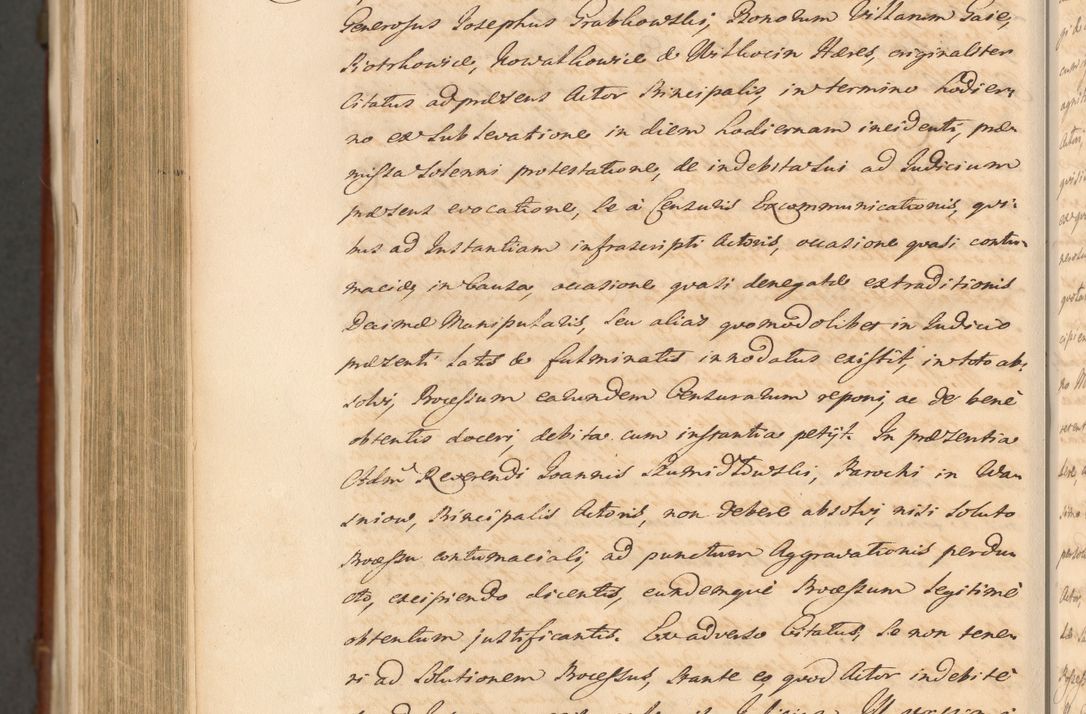 Generosus Josephus Grabkowski, Bonorum Villarum Gaie,
Piotrkowice, Nowatkowice & Witkocin Hæres, originaliter
Citatus ad præsens Actor Principalis, in termino hodier-
no ex Sublevatione in diem hodiernam incidenti, præ-
missa Solenni protestatione, de indebita Sui ad Judicium
præsens evocatione, Se à Censuris Excommunicationis, qvi-
bus ad Instantiam infrascripti Actoris, occasione qvasi contu-
maciæ, in Causa, occasione qvasi denegatæ extraditionis
Decimæ Manipularis, Seu alias qvomodolibet in Judicio
præsenti latis & fulminatis innodatus existit, in toto ab-
solvi, Processum earundem Censurarum reponi, ac de benè
obtentis doceri, debita cum instantia petijt. In præsentia
Adm Reverendi Joannis
Parochi in Wa-
sniow, Principalis Actoris, non debere absolvi, nisi soluto
Processu contumaciali, ad punctum Aggravationis perdu-
cto, excipiendo dicentis, eundemqvè Processum legitimè
obtentum justificantis. Ex adverso Citatus, Se non tene-
ri ad Solutionem Processus, Stante eo, qvod Actor indebitè